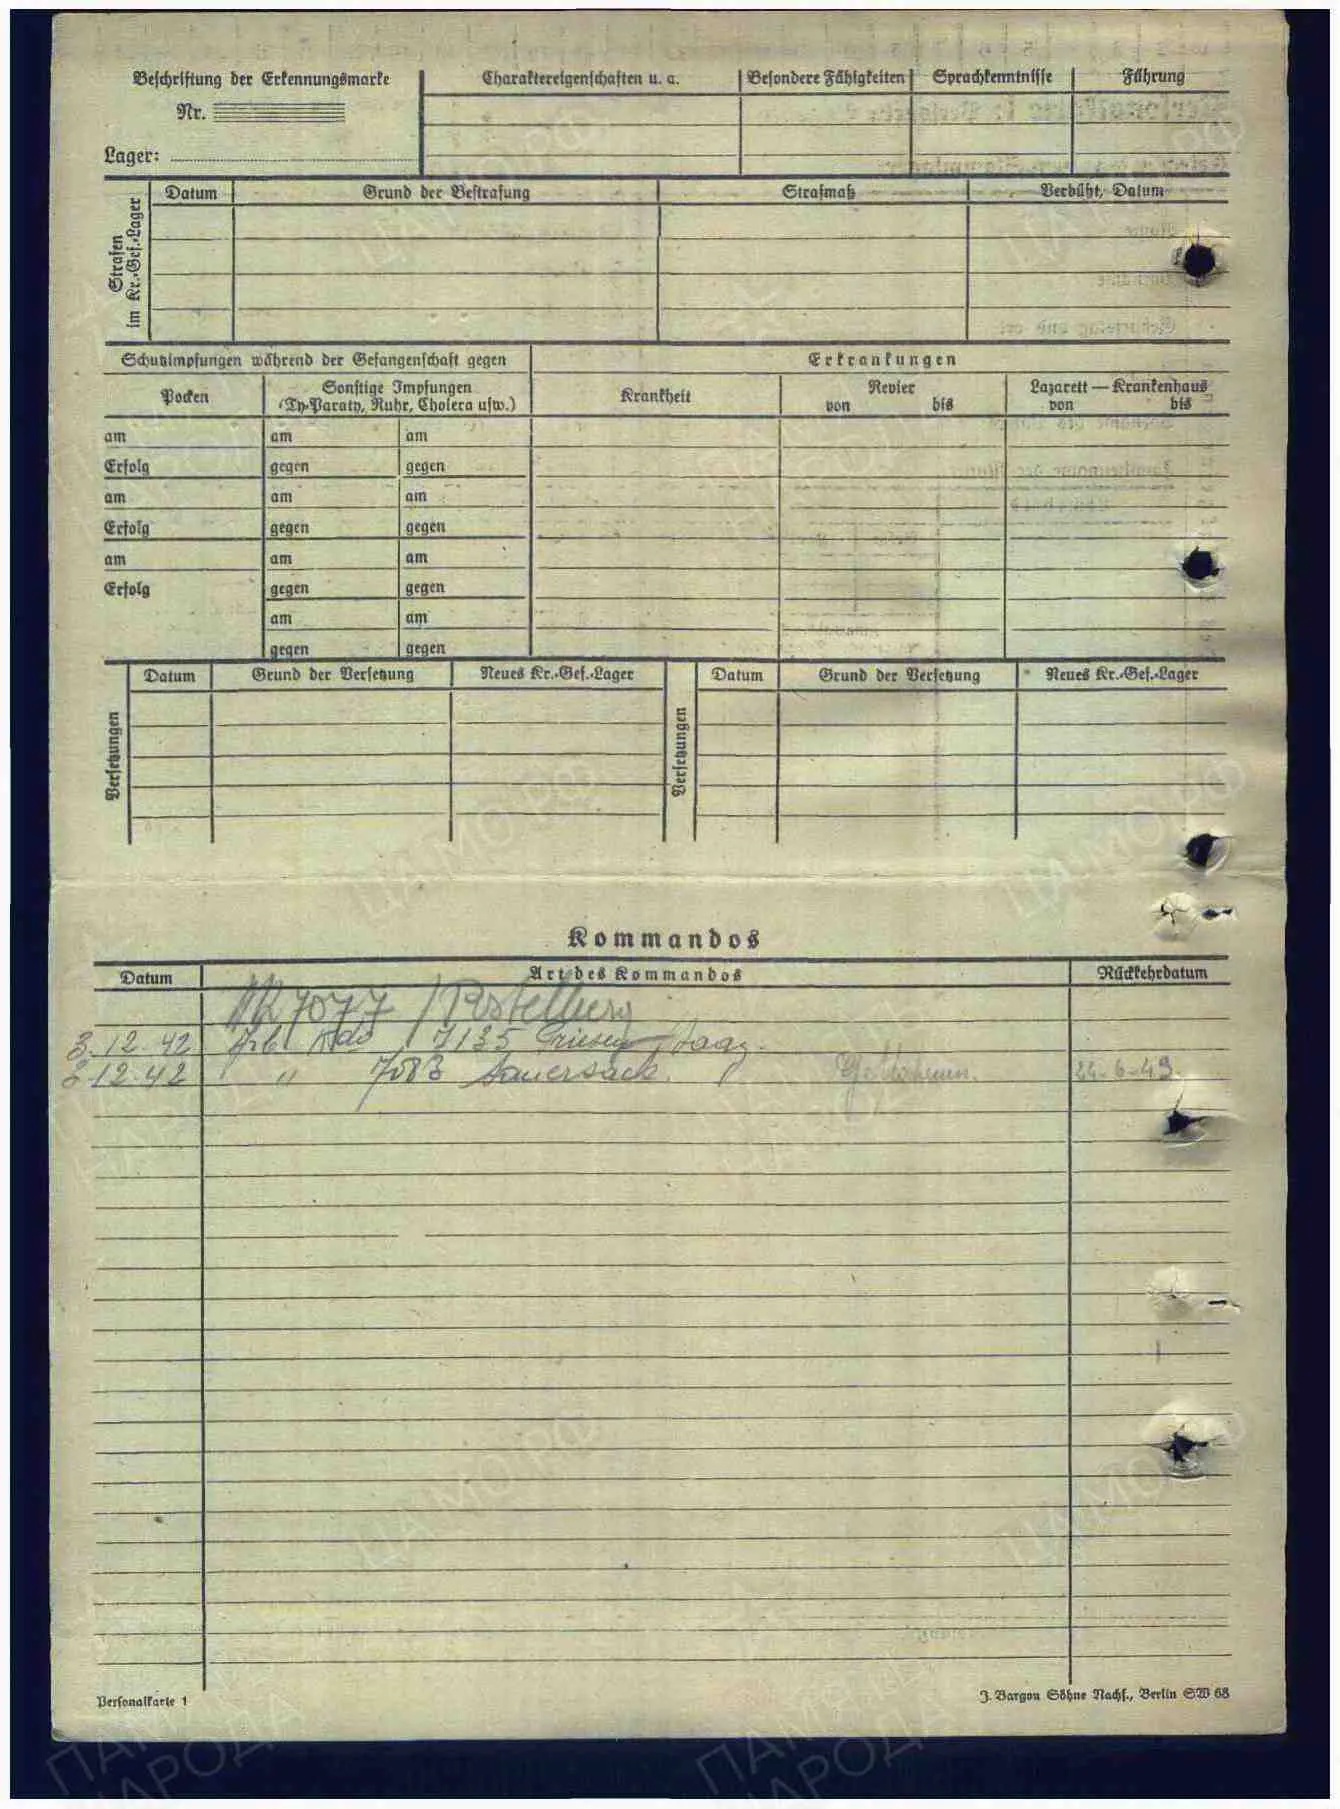 Beschriftung der Erkennungsmarke
Nr.
Lager:
Charaktereigenschaften u. a. Besondere Fähigkeiten Sprachkenntnisse Führung
Strafen im Kr.-Gef.-Lager
Datum Grund der Bestrafung Strafmaß Verbüßt, Datum
Schutzimpfungen während der Gefangenschaft gegen Erkrankungen
Pocken Sonstige Impfungen Krankheit Revier Lazarett — Krankenhaus
(Ty-Paraty, Ruhr, Cholera usw.) von bis von bis
am am am
Erfolg gegen gegen
am am am
Erfolg gegen gegen
am am am
Erfolg gegen gegen
am am
gegen gegen
Versetzungen
Datum Grund der Versetzung Neues Kr.-Gef.-Lager
Versetzungen
Datum Grund der Versetzung Neues Kr.-Gef.-Lager
Kommandos
Datum Art des Kommandos Rückkehrdatum
7077 / Postelberg
3.12.42 Arb Kdo 7135 Saaz.
3.12.42 " 7083 Sauersack. 24.6.43.
Personalkarte 1
J. Bargou Söhne Nachf., Berlin SW 68
ЦАМО РФ
ПАМЯТЬ НАРОДА